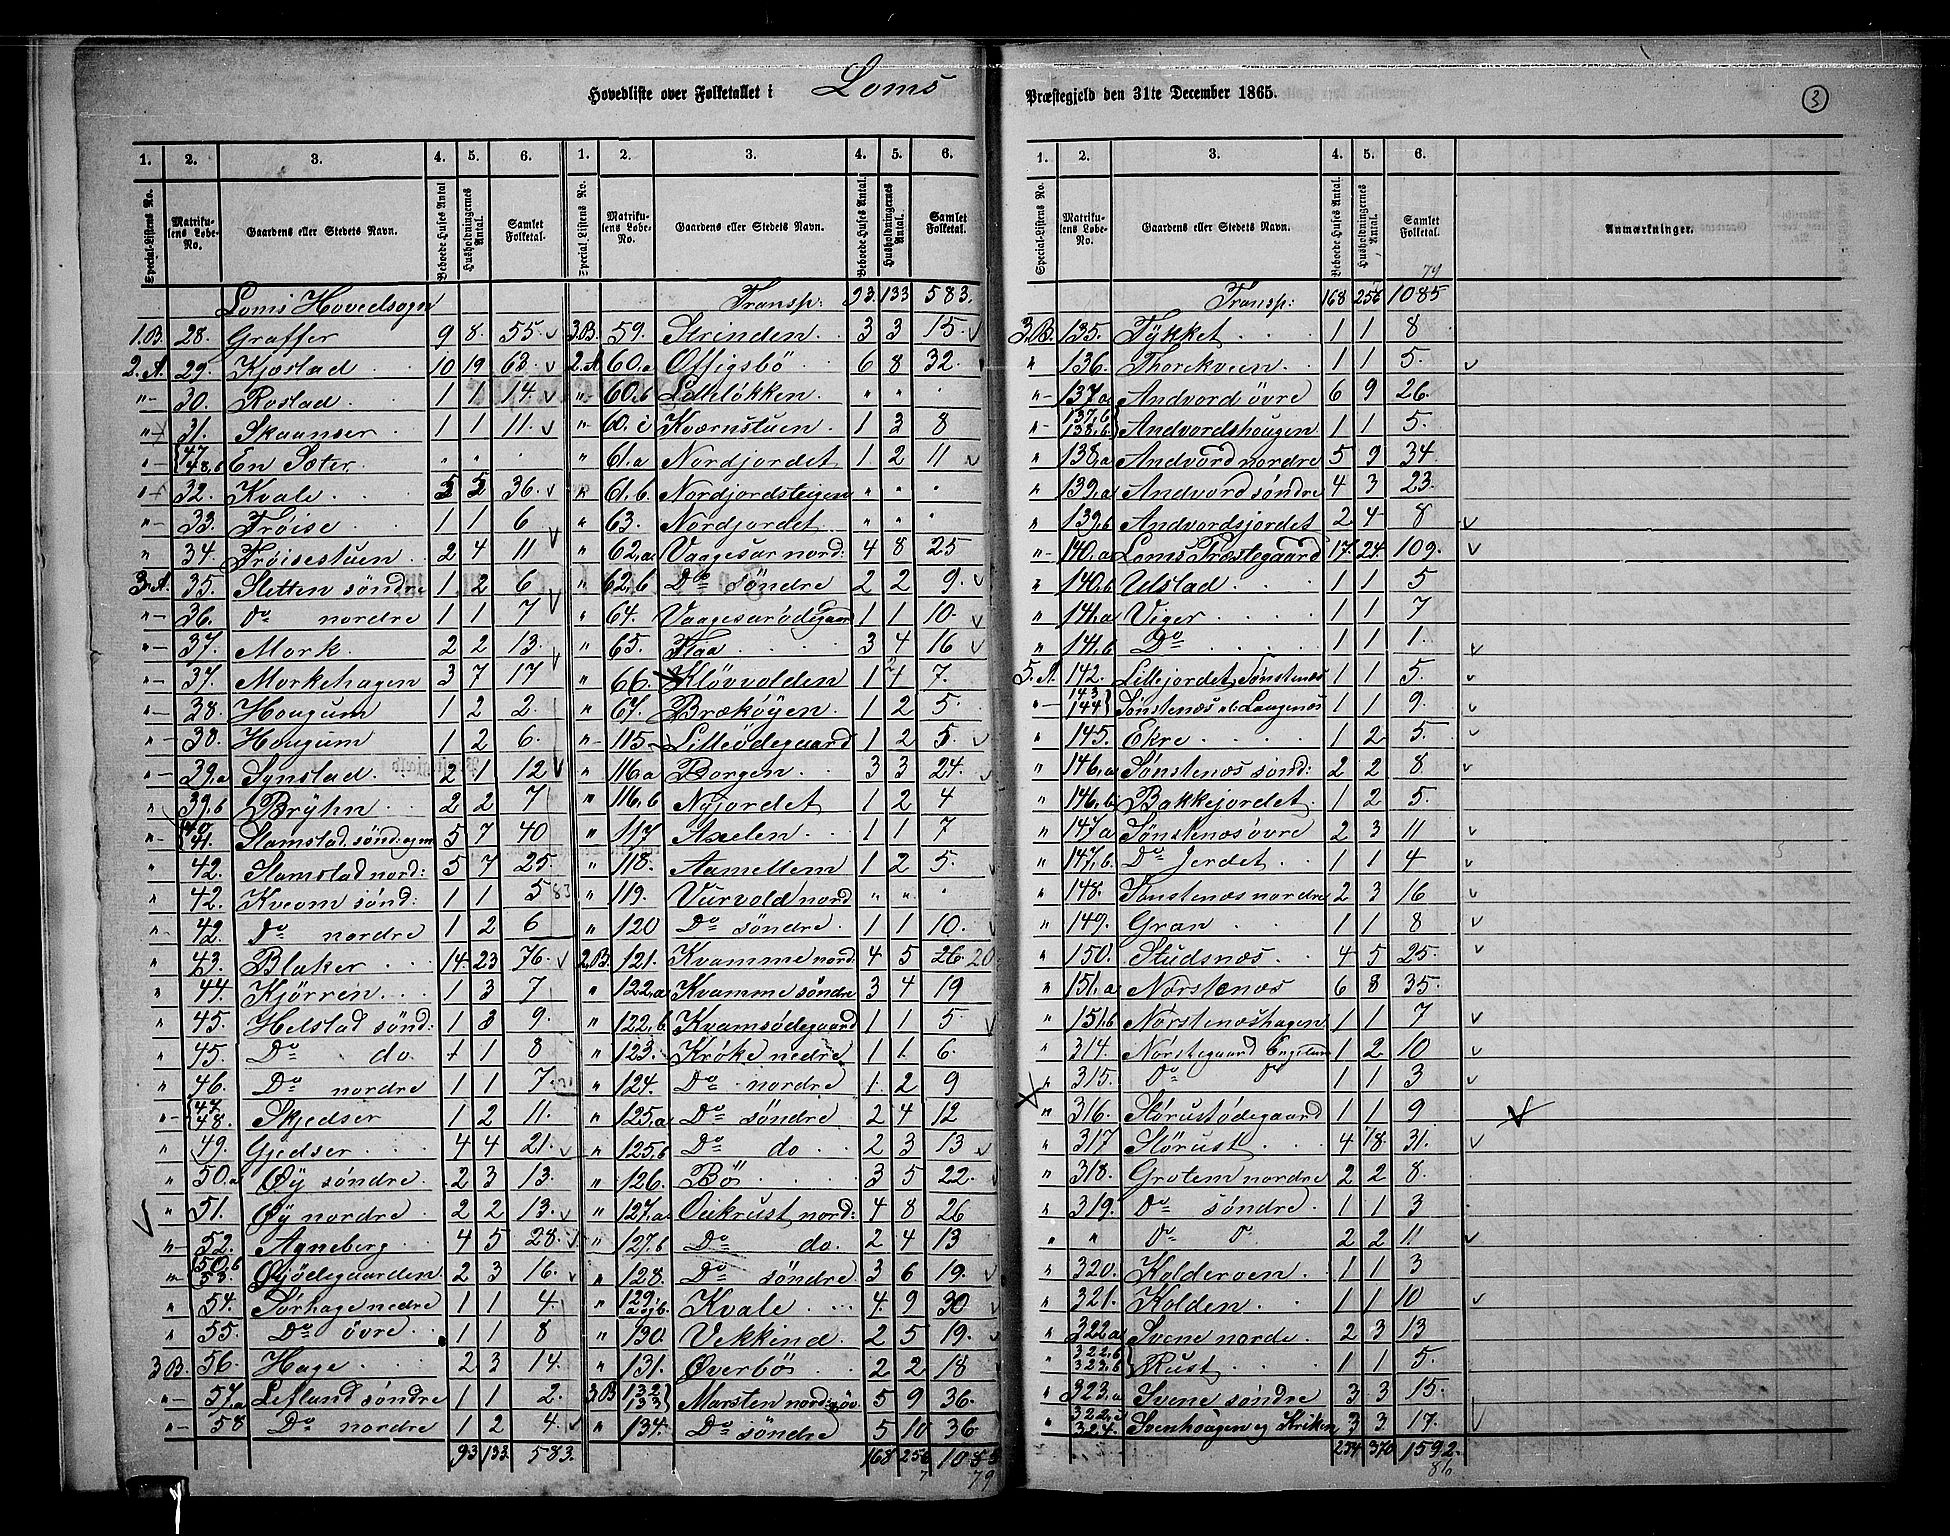 Hovedliste over Folketallet i Loms Præstegjeld den 31te December 1865.
3
1. 2. 3. 4. 5. 6. 1. 2. 3. 4. 5. 6.
Special-Listens No. Matrikulens Løbe-No. Gaardens eller Stedets Navn. Beboede Huses Antal Husholdningernes Antal. Samlet Folketal. Special Listens No. Matrikulens Løbe-No. Gaardens eller Stedets Navn. Beboede Huses Antal. Husholdningernes Antal. Samlet Folketal.
Loms Hovedsogn
1.B. 28. Graffer 9 8. 55.
2.A. 29. Kjæstad 10 19 63.
"- 30. Rostad. 1 1 14.
"- 31. Skaanser 1 1 11.
"- 47 48,b En Sæter. " " .
"- 32. Kvale 5 5 36.
"- 33. Frøise 1 1 6
" 34. Frøisestuen 2 4 11
3.A. 35. Sletten søndre 1 2 6
"- 36. do nordre 1 1 7
"- 37. Mork 2 2 13.
"- 37. Morkehagen 3 7 17
"- 38. Hougum 1 2 2.
"- 38. Hougum 1 2 6.
"- 39,a Synstad. 2 1 12
" 39,b Bryhn 2 2 7
"- 40. 41. Slamstad sønd: og m 5 7 40
" 42. Slamstad nord: 5 7 25.
" 42. Kveom sønd: 1 1 5 83
"- 42. Do nordre 1 2 6
" 43. Blaker 14. 23 76.
" 44. Kjørren 1 3 7
" 45. Helstad sønd: 1 3 9.
" 45. Do do. 1 1 8
" 46. Do nordre 1 1 7
"- 47. 48. Skjedser 1 2 11.
" 49. Gjedser 4 4 21.
" 50.a Øy søndre 2 3 13.
" 51. Øy nordre 2 2 13.
"- 52. Agneberg 4 5 28.
"- 50,b 53. Øjødegaarden 2 3 16.
" 54. Sørhage nedre 1 1 4.
" 55. Do övre 1 1 8
3 B. 56. Hage 2 3 14.
"- 57,a Lefland søndre 1 1 2.
"- 58 Do nordre 1 2 4.
93 133 583.
Transp: 93. 133 583.
3.B. 59. Strinden 3 3 15.
2.A 60.a Offigsbö 6 8 32.
"- 60,b Ladeløkken " " .
" 60. c Kværnstuen 1 3 8
" 61.a Nordjordet 1. 2 11
" 61,b. Nordjordsteigen " " "
" 63. Nordjordet " " "
" 62,a Vaagesar nord: 4 8 25
" 62,b Do søndre 2 2 9.
" 64. Vaagesarødegaard 1 1 10.
" 65. Flaa 3 4 16
" 66. Kløvvolden 1 7.
" 67. Brækøyen 1 2 5.
" 115. Lilleødegaard 1 2 5
" 116a Borgen 3 3 24.
" 116,b Nyjordet 1 2 4
" 117 Axelen 1 1 7
" 118. Aamellem 1 2 5.
" 119. Vurvold nord " " "
" 120 Do søndre 1 1 10.
2.B. 121. Kvamme nord 4 5 26 20
" 122,a Kvamme søndre 3 4 19
" 122,b. Kvamsødegaard 1 1 5
" 123. Krøke nedre 1 1. 6.
" 124. Do nordre 1. 2 9
" 125,a Do søndre 2 4 12
" 125,b Do do 2 3 13
" 126. Bö 3 5 22.
" 127,a Oukrust nord: 4 8 26
" 127,b Do do. 2 4 13
" 128. Do søndre 3 6 19.
" 129 a og b. Kvale 4. 9 30
" 130. Vekkind 2 5 19.
" 131. Øverbö 2 2 18
3B 132 133 Marsten nord: øv. 5 9 36.
" 134. Do søndre 5 10 36
168 256 1085
7 79
1. 2. 3. 4. 5. 6.
Special-Listens No. Matrikulens Løbe-No. Gaardens eller Stedets Navn. Beboede Huses Antal Husholdningernes Antal. Samlet Folketal. Anmærkninger.
79
Transp: 168 256 1085
3.B. 135. Tykket 1 1 8
" 136. Thorekveen 1 1 5.
"- 137a Andvord övre 6 9 26.
"- 137,b 138,b Andvordshougen 1 1 5.
" 138,a Andvord nordre 5 9 34.
" 139,a Andvord søndre 4 3 23.
" 139,b Andvordsjordet 2 4 8
"- 140,a Loms Præstegaard 17. 24 109.
" 140,b Udstad 1 1 5
" 141,a Viger 1 1 7
" 141,b Do 1 1 1.
5.A. 142. Lillejordet Sønstenæs 1 1 5.
"- 143 144 Sønstenæs el. Langenæs 1 1 9.
" 145. Ekre 1 2 5.
" 146,a Sønstenæs sønd: 2 2 8
" 146,b Bakkejordet 1 2 5.
" 147a Sønstenæs övre 2 3 11
" 147,b. Do Jordet 1 1 4
" 148. Sønstenæs nordre 2 3 16
" 149. Gran 1 1 8
" 150. Studsnæs 4 5 25.
" 151,a Nørstenæs 6 8 35.
" 151,b Nørstenæshagen 1 1 7
" 314. Nørstegaard 1 2 10
" 315. do do 1 1 3
" 316. Størustødegaard 1 1 9
" 317 Størust 4 8. 31.
" 318. Grotem nordre 2 2 8.
" 319. Do søndre 1 1 3
" " do do 2 2 11
" 320. Kolderven 1 1 3
" 321. Kolden 1 1 10
" 322a Svene norde 2 3 13
" 322,b 323,b Rust 1 1 5.
" 323,a Svene søndre 3 3 15.
" 322,c 324. Svenhougen og Kriken 3 3 17.
234 370 1592.
86